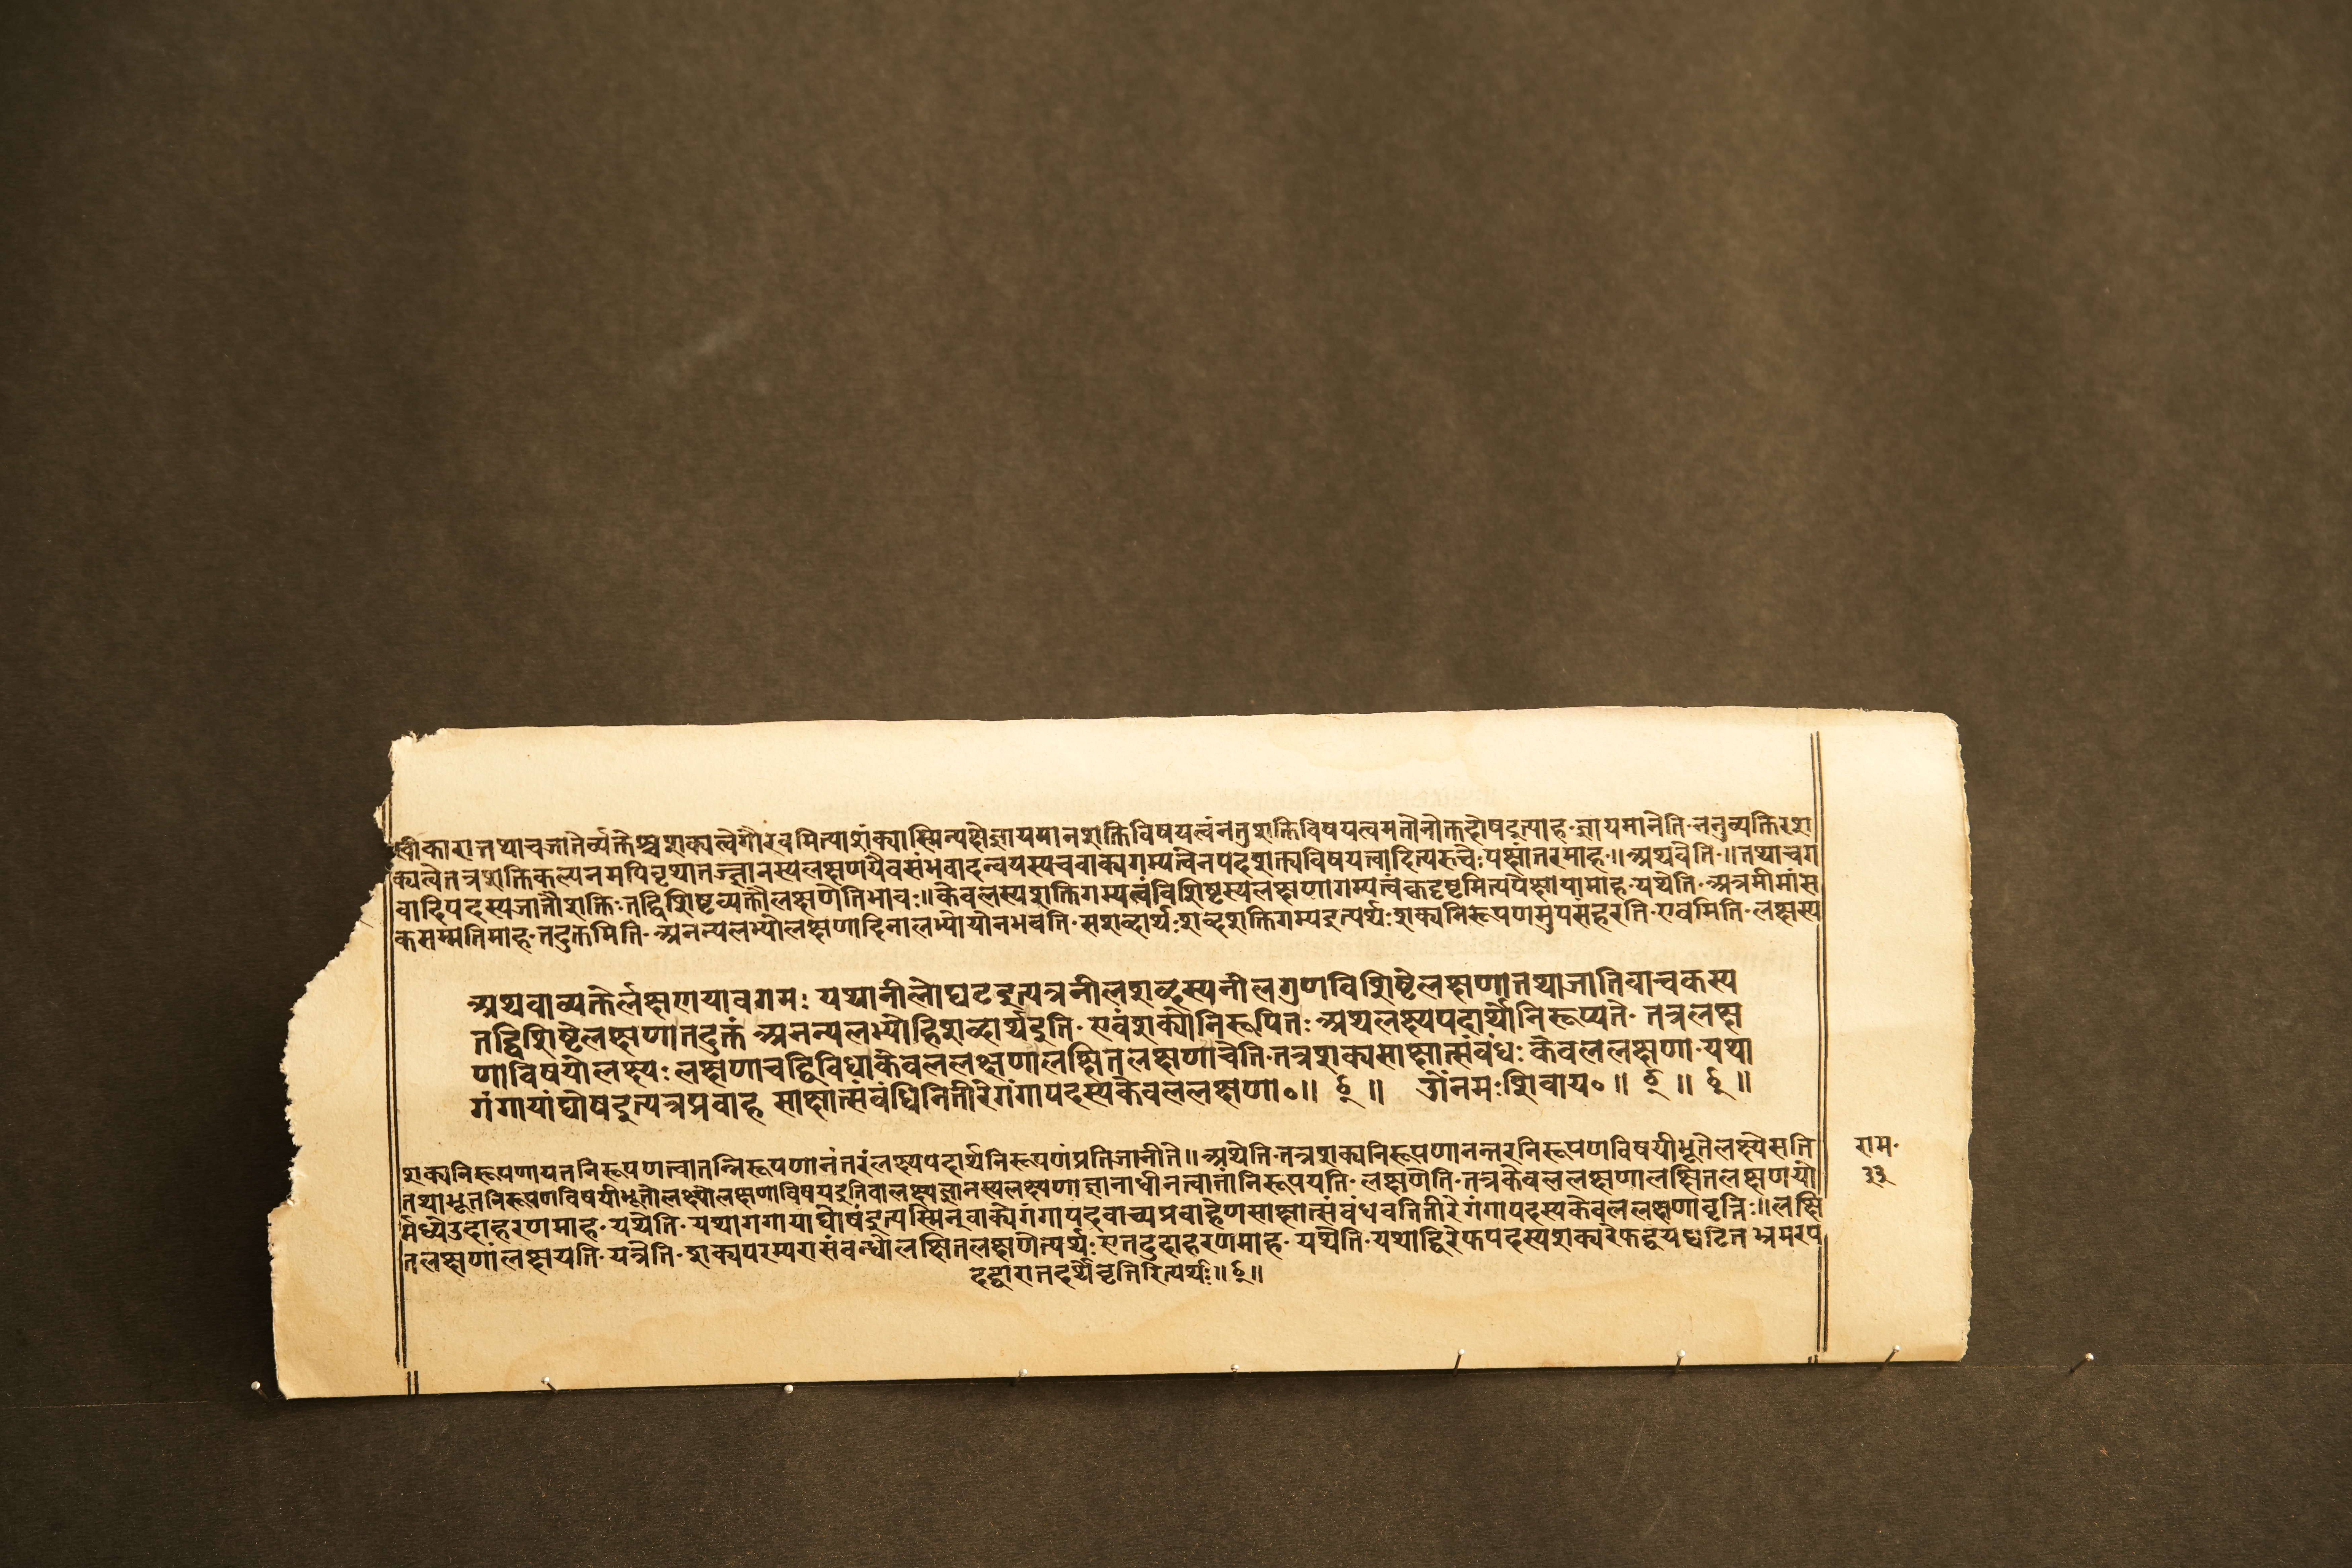 कारात्तथाचजातेर्व्यक्तेश्चशक्यत्वेगौरवमित्याशंक्यास्मिन्पक्षेज्ञायमानशक्तिविषयत्वंनतुशक्तिविषयत्वमतोनोक्तदोषइत्याह॰ज्ञायमानेति॰ननुव्यक्तिरश
क्यत्वेतत्रशक्तिकल्पनमपिवृथातज्ज्ञानस्यलक्षणयैवसंभवादन्वयस्यचवाक्यगम्यत्वेनपदशक्त्यविषयत्वादित्यरूचेःपक्षांतरमाह॰॥अथवेति॰॥तथाचग
वादिपदस्यजातौशक्तिः॰तद्विशिष्टव्यक्तौलक्षणेतिभावः॥केवलस्यशक्तिगम्यत्वंविशिष्टस्यलक्षणागम्यत्वंक्वदृष्टमित्यपेक्षायामाह॰यथेति॰अत्रमीमांस
कसम्मतिमाह॰तदुक्तमिति॰अनन्यलभ्योलक्षणादिनालभ्योयोनभवति॰सशब्दार्थःशब्दशक्तिगम्यइत्यर्थःशक्यनिरूपणमुपसंहरति॰एवमिति॰लक्षस्य
अथवाव्यक्तेर्लक्षणयावगमः यथानीलोघटइत्यत्रनीलशब्दस्यनीलगुणविशिष्टेलक्षणातथाजातिवाचकस्य
तद्विशिष्टेलक्षणातदुक्तं अनन्यलभ्योहिशब्दार्थइति॰ एवंशक्योनिरूपितः अथलक्ष्यपदार्थोनिरूप्यते॰ तत्रलक्ष
णाविषयोलक्ष्यः लक्षणाचद्विविधाकेवललक्षणालक्षितलक्षणाचेति॰तत्रशक्यसाक्षात्संबंधः केवललक्षणा॰यथा
गंगायांघोषइत्यत्रप्रवाह साक्षात्संबंधिनितीरेगंगापदस्यकेवललक्षणा०॥ ६ ॥ ओंनमःशिवाय०॥ ६ ॥ ६ ॥
शक्यनिरूपणायतनिरूपणत्वातन्निरूपणानंतरंलक्ष्यपदार्थनिरूपणंप्रतिजानीते॥अथेति॰तत्रशक्यनिरूपणानन्तरनिरूपणविषयीभूतेलक्ष्येसति
तथाभूतनिरूपणविषयीभूतोलक्ष्योलक्षणाविषयइतिवालक्ष्यज्ञानस्यलक्षणाज्ञानाधीनत्वात्तांनिरूपयति॰लक्षणेति॰तत्रकेवललक्षणालक्षितलक्षणयो
र्मध्येउदाहरणमाह॰यथेति॰यथागगायांघोषइत्यस्मिन्वाक्येगंगापदवाच्यप्रवाहेणसाक्षात्संबंधवतितीरेगंगापदस्यकेवललक्षणावृत्तिः॥लक्षि
तलक्षणांलक्षयति॰यत्रेति॰शक्यपरम्परासंबन्धोलक्षितलक्षणेत्यर्थःएतदुदाहरणमाह॰यथेति॰यथाद्विरेफपदस्यशक्यरेफद्वयघटितभ्रमरप
दद्वारातदर्थेवृत्तिरित्यर्थः॥६॥
राम॰
३३